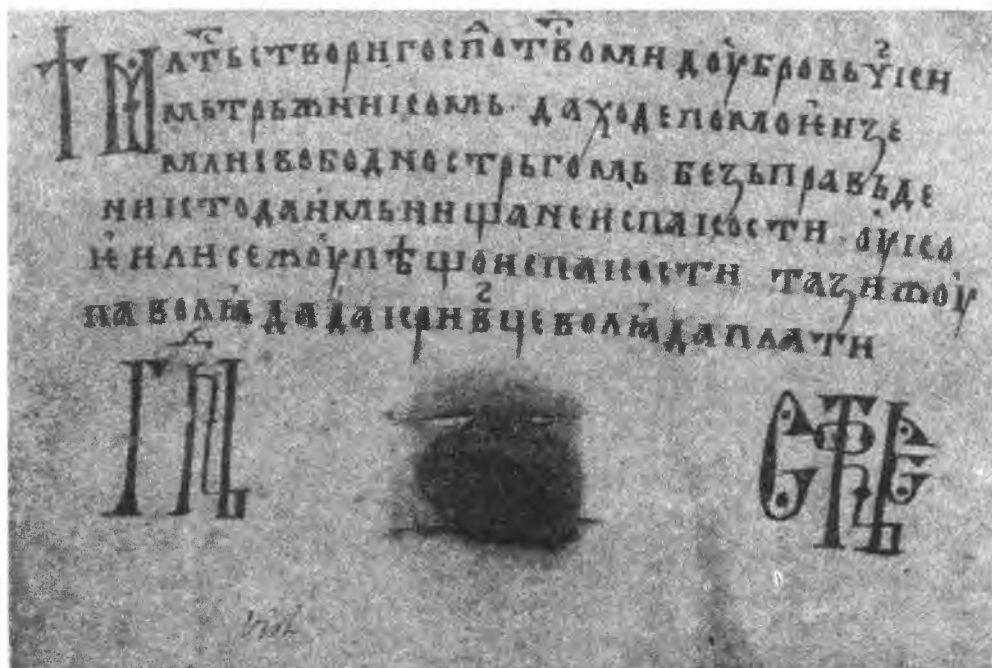 † Мл҇тьстворигоспот҇вомидоубровьч꙯ки
мьтрьжникомь · даходепомоѥизе
млисвободнострьгомь безьправьде
никтодаимьнищанеиспакости · оуко
ѥилисежоупѣщоиспакости тазижоу
паволꙗдадакривцеволꙗдаплати